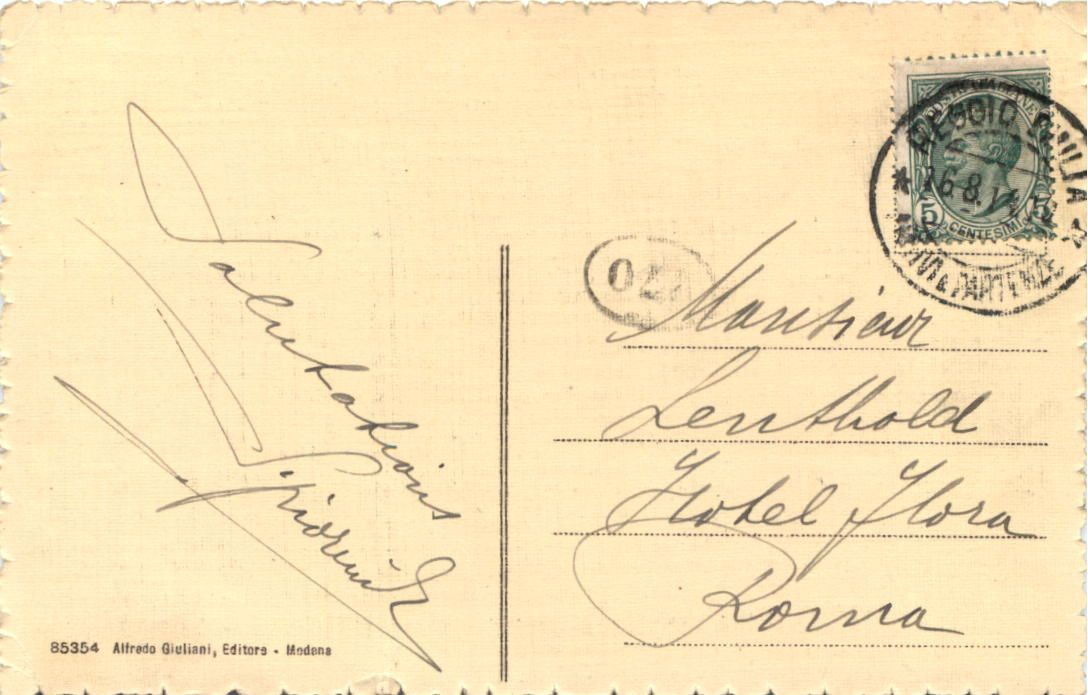 Salutations
Monsieur
Leuthold
Hotel Flora
Roma
POSTE ITALIANE
5 5
CENTESIMI
REGGIO EMILIA
16.8.11
85354 Alfredo Giuliani, Editore - Modena